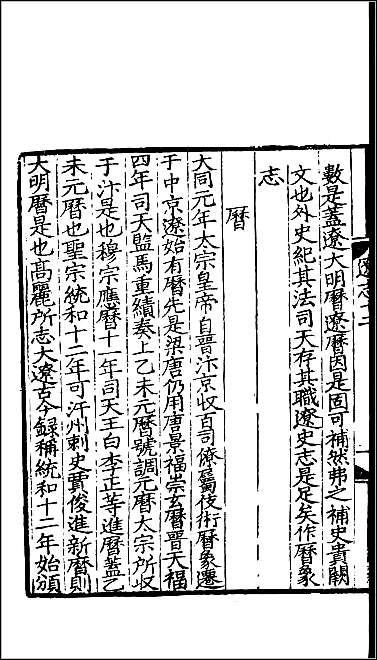 數是蓋遼大明曆遼曆因是固可補然弗之補史貴闕
文也外史紀其法司天存其職遼史志是足矣作曆象
志
曆
大同元年太宗皇帝自晉汴京收百司僚屬伎術曆象遷
于中京遼始有曆先是梁唐仍用唐景福崇玄曆晉天福
四年司天監馬重績奏上乙未元曆號調元曆太宗所收
于汴是也穆宗應曆十一年司天王白李正等進曆蓋乙
未元曆也聖宗統和十二年可汗州刺史賈俊進新曆則
大明曆是也高麗所志大遼古今錄稱統和十二年始頒